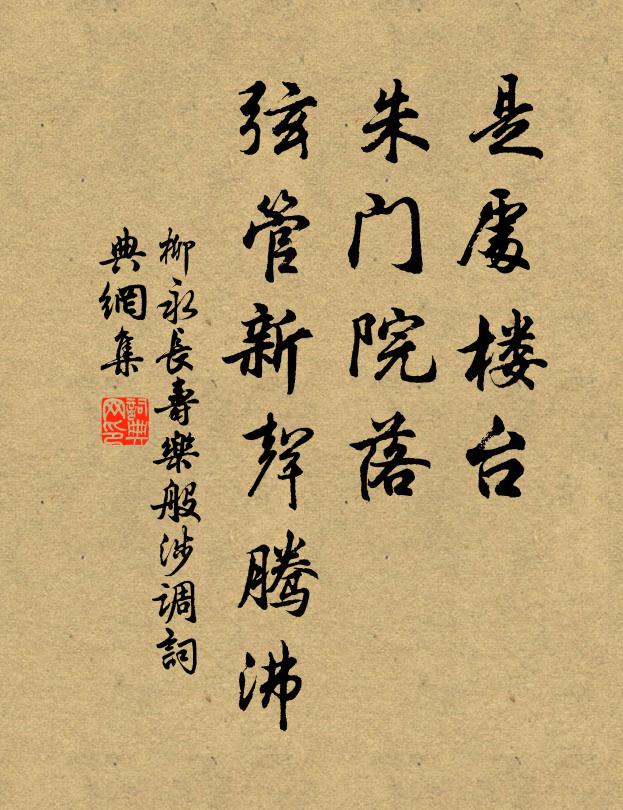 是處楼台
朱门院落
弦管新聲腾沸
柳永長壽樂般涉调詞
典網集
詞典网印